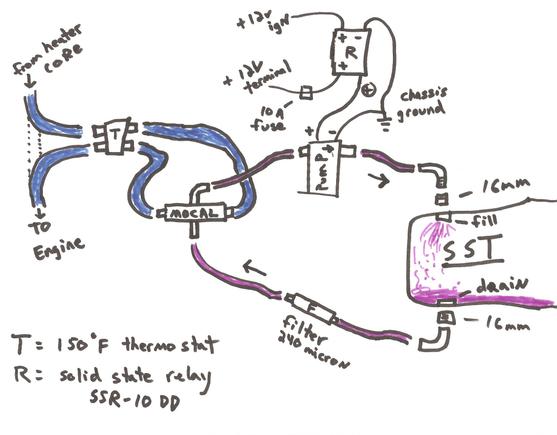 +12v
ign
from heater
CORE
+ 12V
terminal
R
+ -
10A
fuse
chassis
ground
T
+ -
PUMP
16mm
MOCAL
fill
SST
TO
Engine
drain
F
filter
240 micron
16mm
T = 150°F thermostat
R = solid state relay
SSR-10 DD